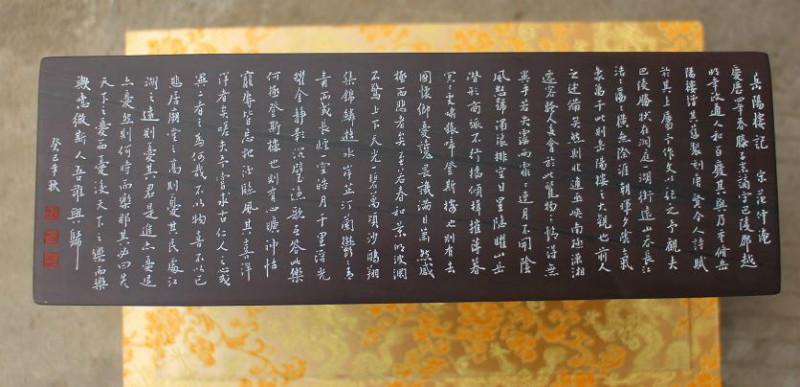 岳陽樓記 宋 范仲淹
慶曆四年春滕子京謫守巴陵郡越
明年政通人和百廢具興乃重脩岳
陽樓增其舊製刻唐賢今人詩賦
於其上屬予作文以記之予觀夫
巴陵勝狀在洞庭一湖銜遠山吞長江
浩浩蕩蕩橫無際涯朝暉夕陰氣
象萬千此則岳陽樓之大觀也前人
之述備矣然則北通巫峽南極瀟湘
遷客騷人多會於此覽物之情得無
異乎若夫霪雨霏霏連月不開陰
風怒號濁浪排空日星隱曜山岳
潛形商旅不行檣傾楫摧薄暮
冥冥虎嘯猿啼登斯樓也則有去
國懷鄉憂讒畏譏滿目蕭然感
極而悲者矣至若春和景明波瀾
不驚上下天光一碧萬頃沙鷗翔
集錦鱗游泳岸芷汀蘭鬱鬱青
青而或長煙一空皓月千里浮光
耀金靜影沉璧漁歌互答此樂
何極登斯樓也則有心曠神怡
寵辱皆忘把酒臨風其喜洋
洋者矣嗟夫予嘗求古仁人之心或
異二者之為何哉不以物喜不以己
悲居廟堂之高則憂其民處江
湖之遠則憂其君是進亦憂退
亦憂然則何時而樂耶其必曰先
天下之憂而憂後天下之樂而樂
歟噫微斯人吾誰與歸
癸巳年秋